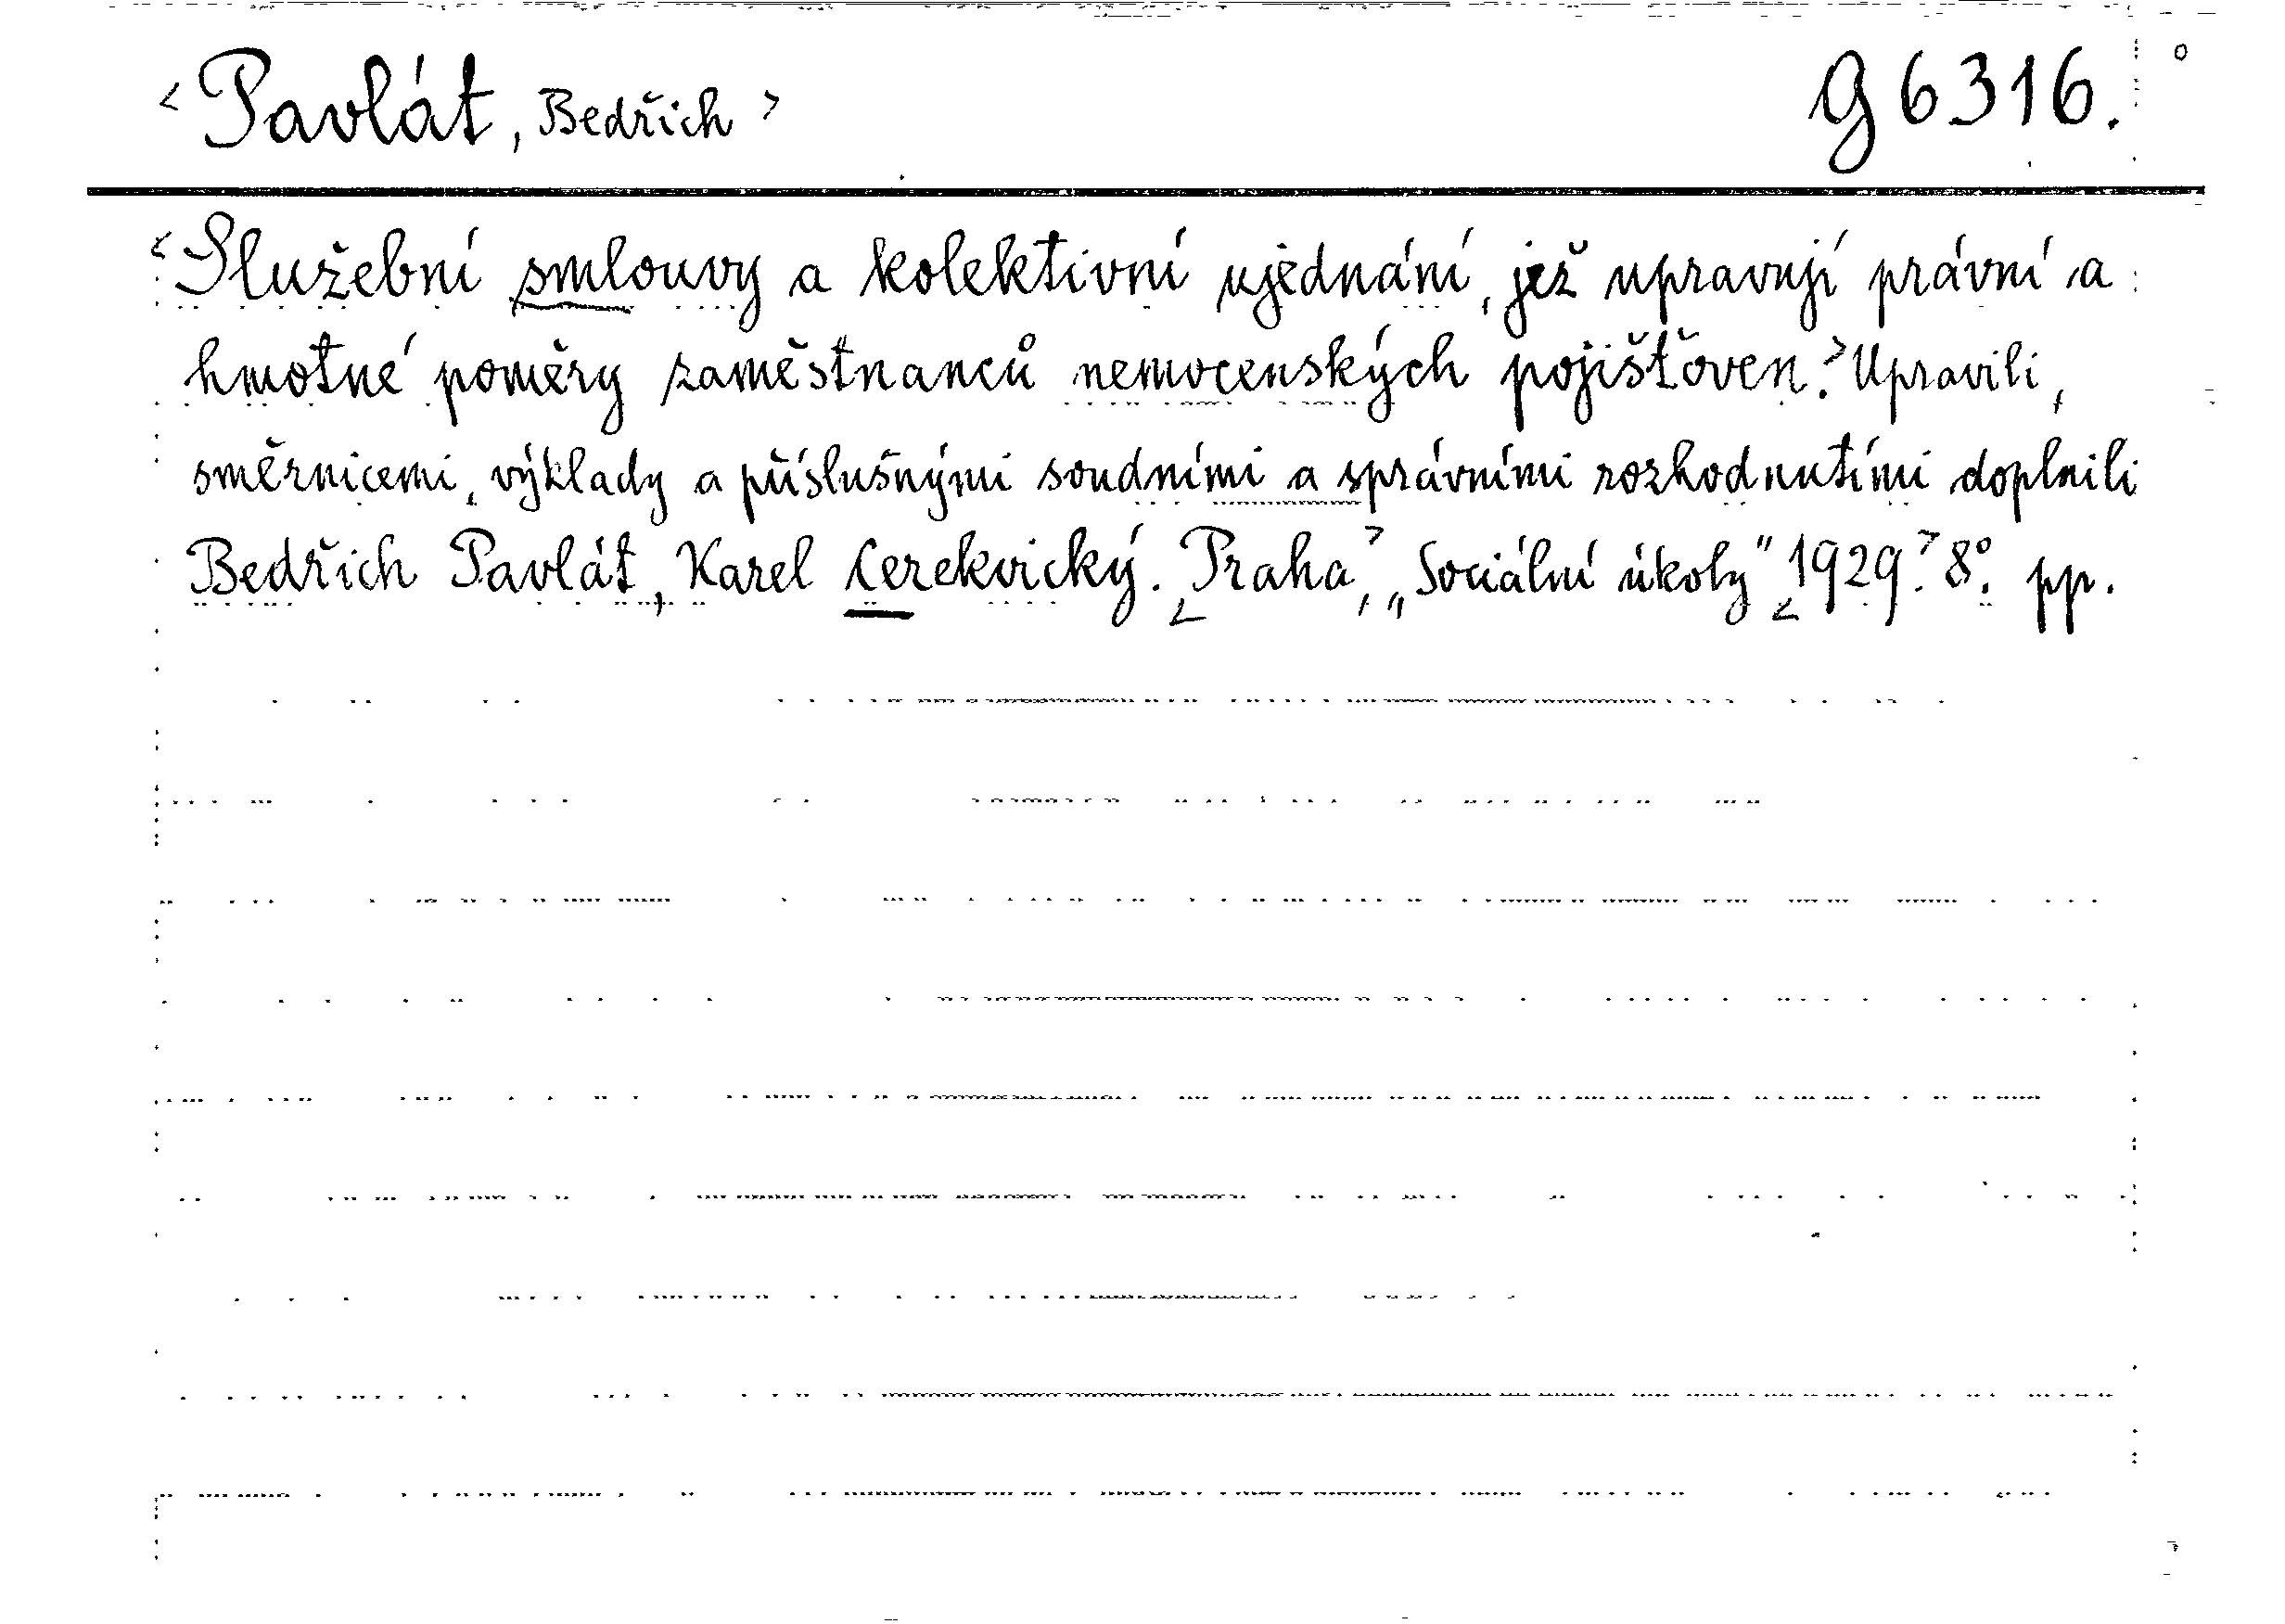 <Pavlát, Bedřich> G 6316.
<Služební smlouvy a kolektivní ujednání, jež upravují právní a
hmotné poměry zaměstnanců nemocenských pojišťoven.> Upravili,
směrnicemi, výklady a příslušnými soudními a správními rozhodnutími doplnili
Bedřich Pavlát, Karel Cerekvický. <Praha>, „Sociální úkoly" <1929>. 8°. pp.